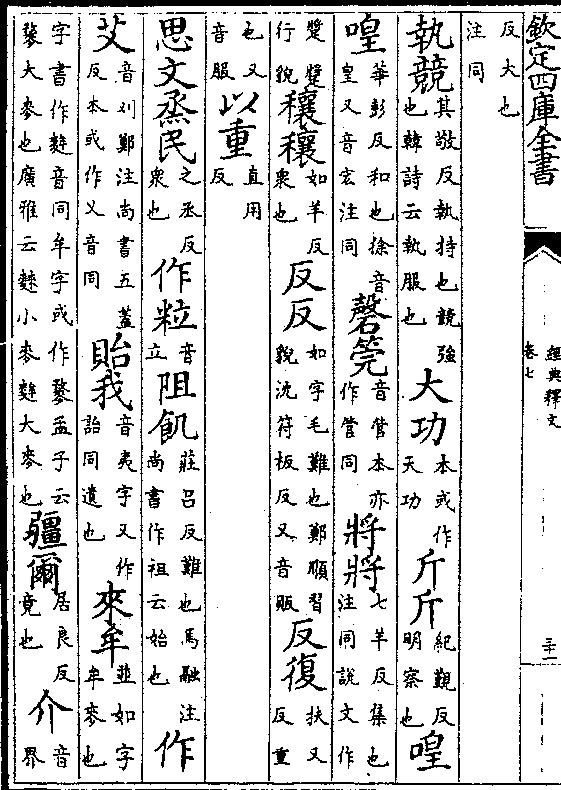 欽定四庫全書 經典釋文 卷七 三十一
反大也
注同
執競其敬反執持也競強也韓詩云執服也大功本或作天功斤斤紀覲反明察也喤
喤華彭反和也徐音皇又音宏注同磬筦音管本亦作管同將將七羊反集也注同說文作
蹡蹡行貌穰穰如羊反衆也反反如字毛難也鄭順習貌沈符板反又音販反復扶又反重
也又音服以重直用反
思文烝民之丞反衆也作粒音立阻飢莊呂反難也馬融注尚書作祖云始也作
艾音刈鄭注尚書五蓋反本或作乂音同貽我音夷字又作詒同遺也來牟並如字牟麥也
字書作麰音同牟字或作䵄孟子云䵄大麥也廣雅云麳小麥麰大麥也疆爾居良反竟也介音界